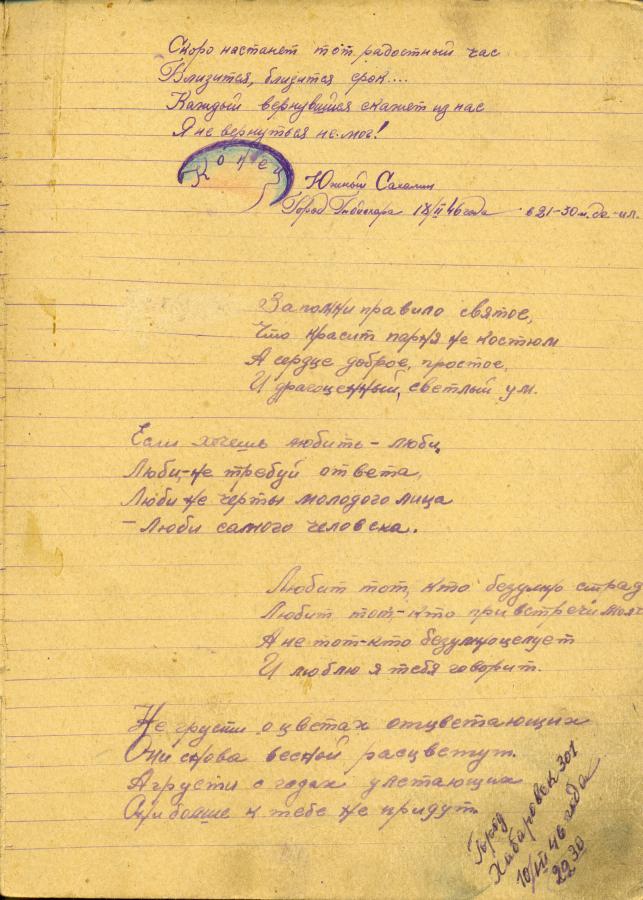 Скоро настанет тот радостный час
Близится, близится срок....
Каждый вернувшийся скажет из нас
Я не вернуться не мог!
Конец
Южный Сахалин
Город 18/II 46 года в 21-30 м.
Запомни правило святое,
Что красит парня не костюм
А сердце доброе, простое,
И драгоценный, светлый ум.
Если хочешь любить - люби,
Люби, не требуй ответа,
Люби не черты молодого лица
- Люби самого человека.
Любит тот, кто безумно страд
Любит тот - кто при встречи молч
А не тот - кто безумно целует
И люблю я тебя говорит.
Не грусти о цветах отцветающих
Они снова весной расцветут.
А грусти о годах улетающих
Они больше к тебе не придут.
Город
Хабаровск 301
10/VII 46 года
22 30